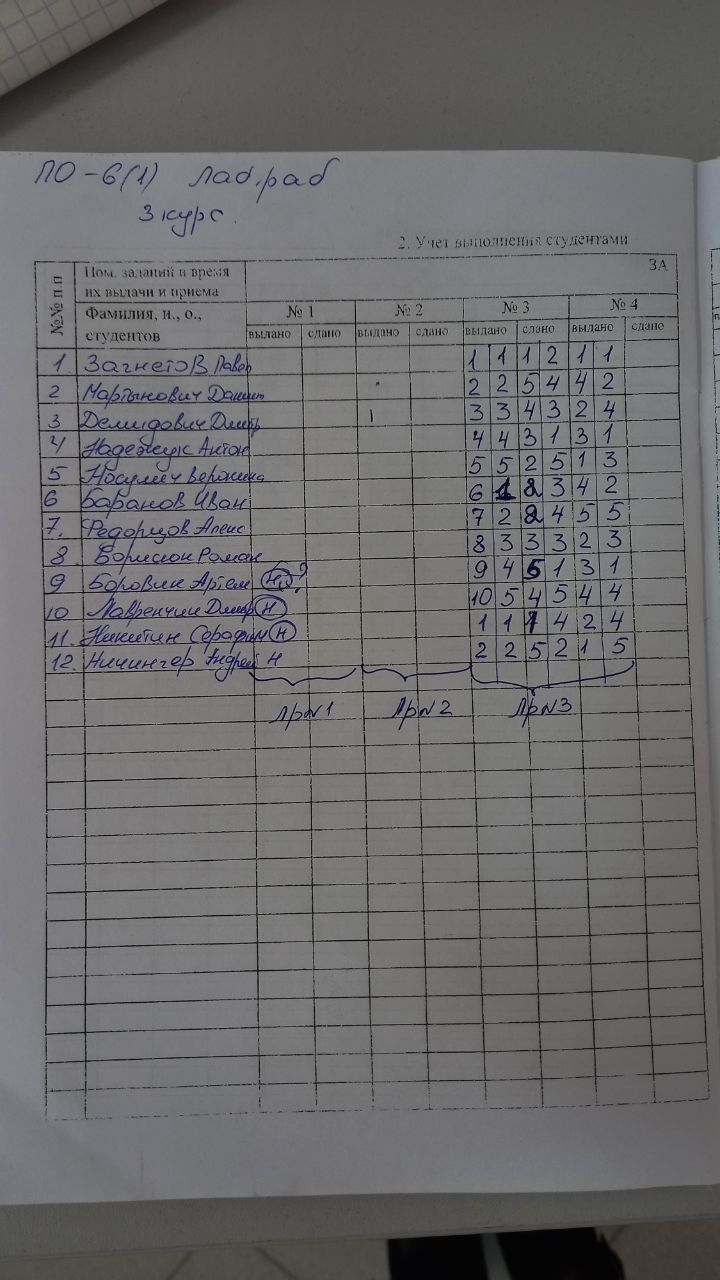 ПО-6(1) Лаб.раб
3 курс.
2. Учет выполнения студентами
№№ п.п Ном. заданий и время их выдачи и приема ЗА
Фамилия, и., о., студентов № 1 № 2 № 3 № 4
выдано сдано выдано сдано выдано сдано выдано сдано
1 Загнетов Павел 1 1 1 2 1 1
2 Мартынович Даниил 2 2 5 4 4 2
3 Демидович Дмитр 3 3 4 3 2 4
4 Надежук Антон 4 4 3 1 3 1
5 Носулич Вероника 5 5 2 5 1 3
6 Баранов Иван 6 1 2 3 4 2
7. Федорцов Алекс 7 2 2 4 5 5
8. Борисюк Роман 8 3 3 3 2 3
9 Боровик Артем ? 9 4 5 1 3 1
10 Лавренчик Дмитр Н 10 5 4 5 4 4
11. Никитин Серафим Н 1 1 1 4 2 4
12. Ничингер Андрей Н 2 2 5 2 1 5
Лр№1 Лр№2 Лр№3